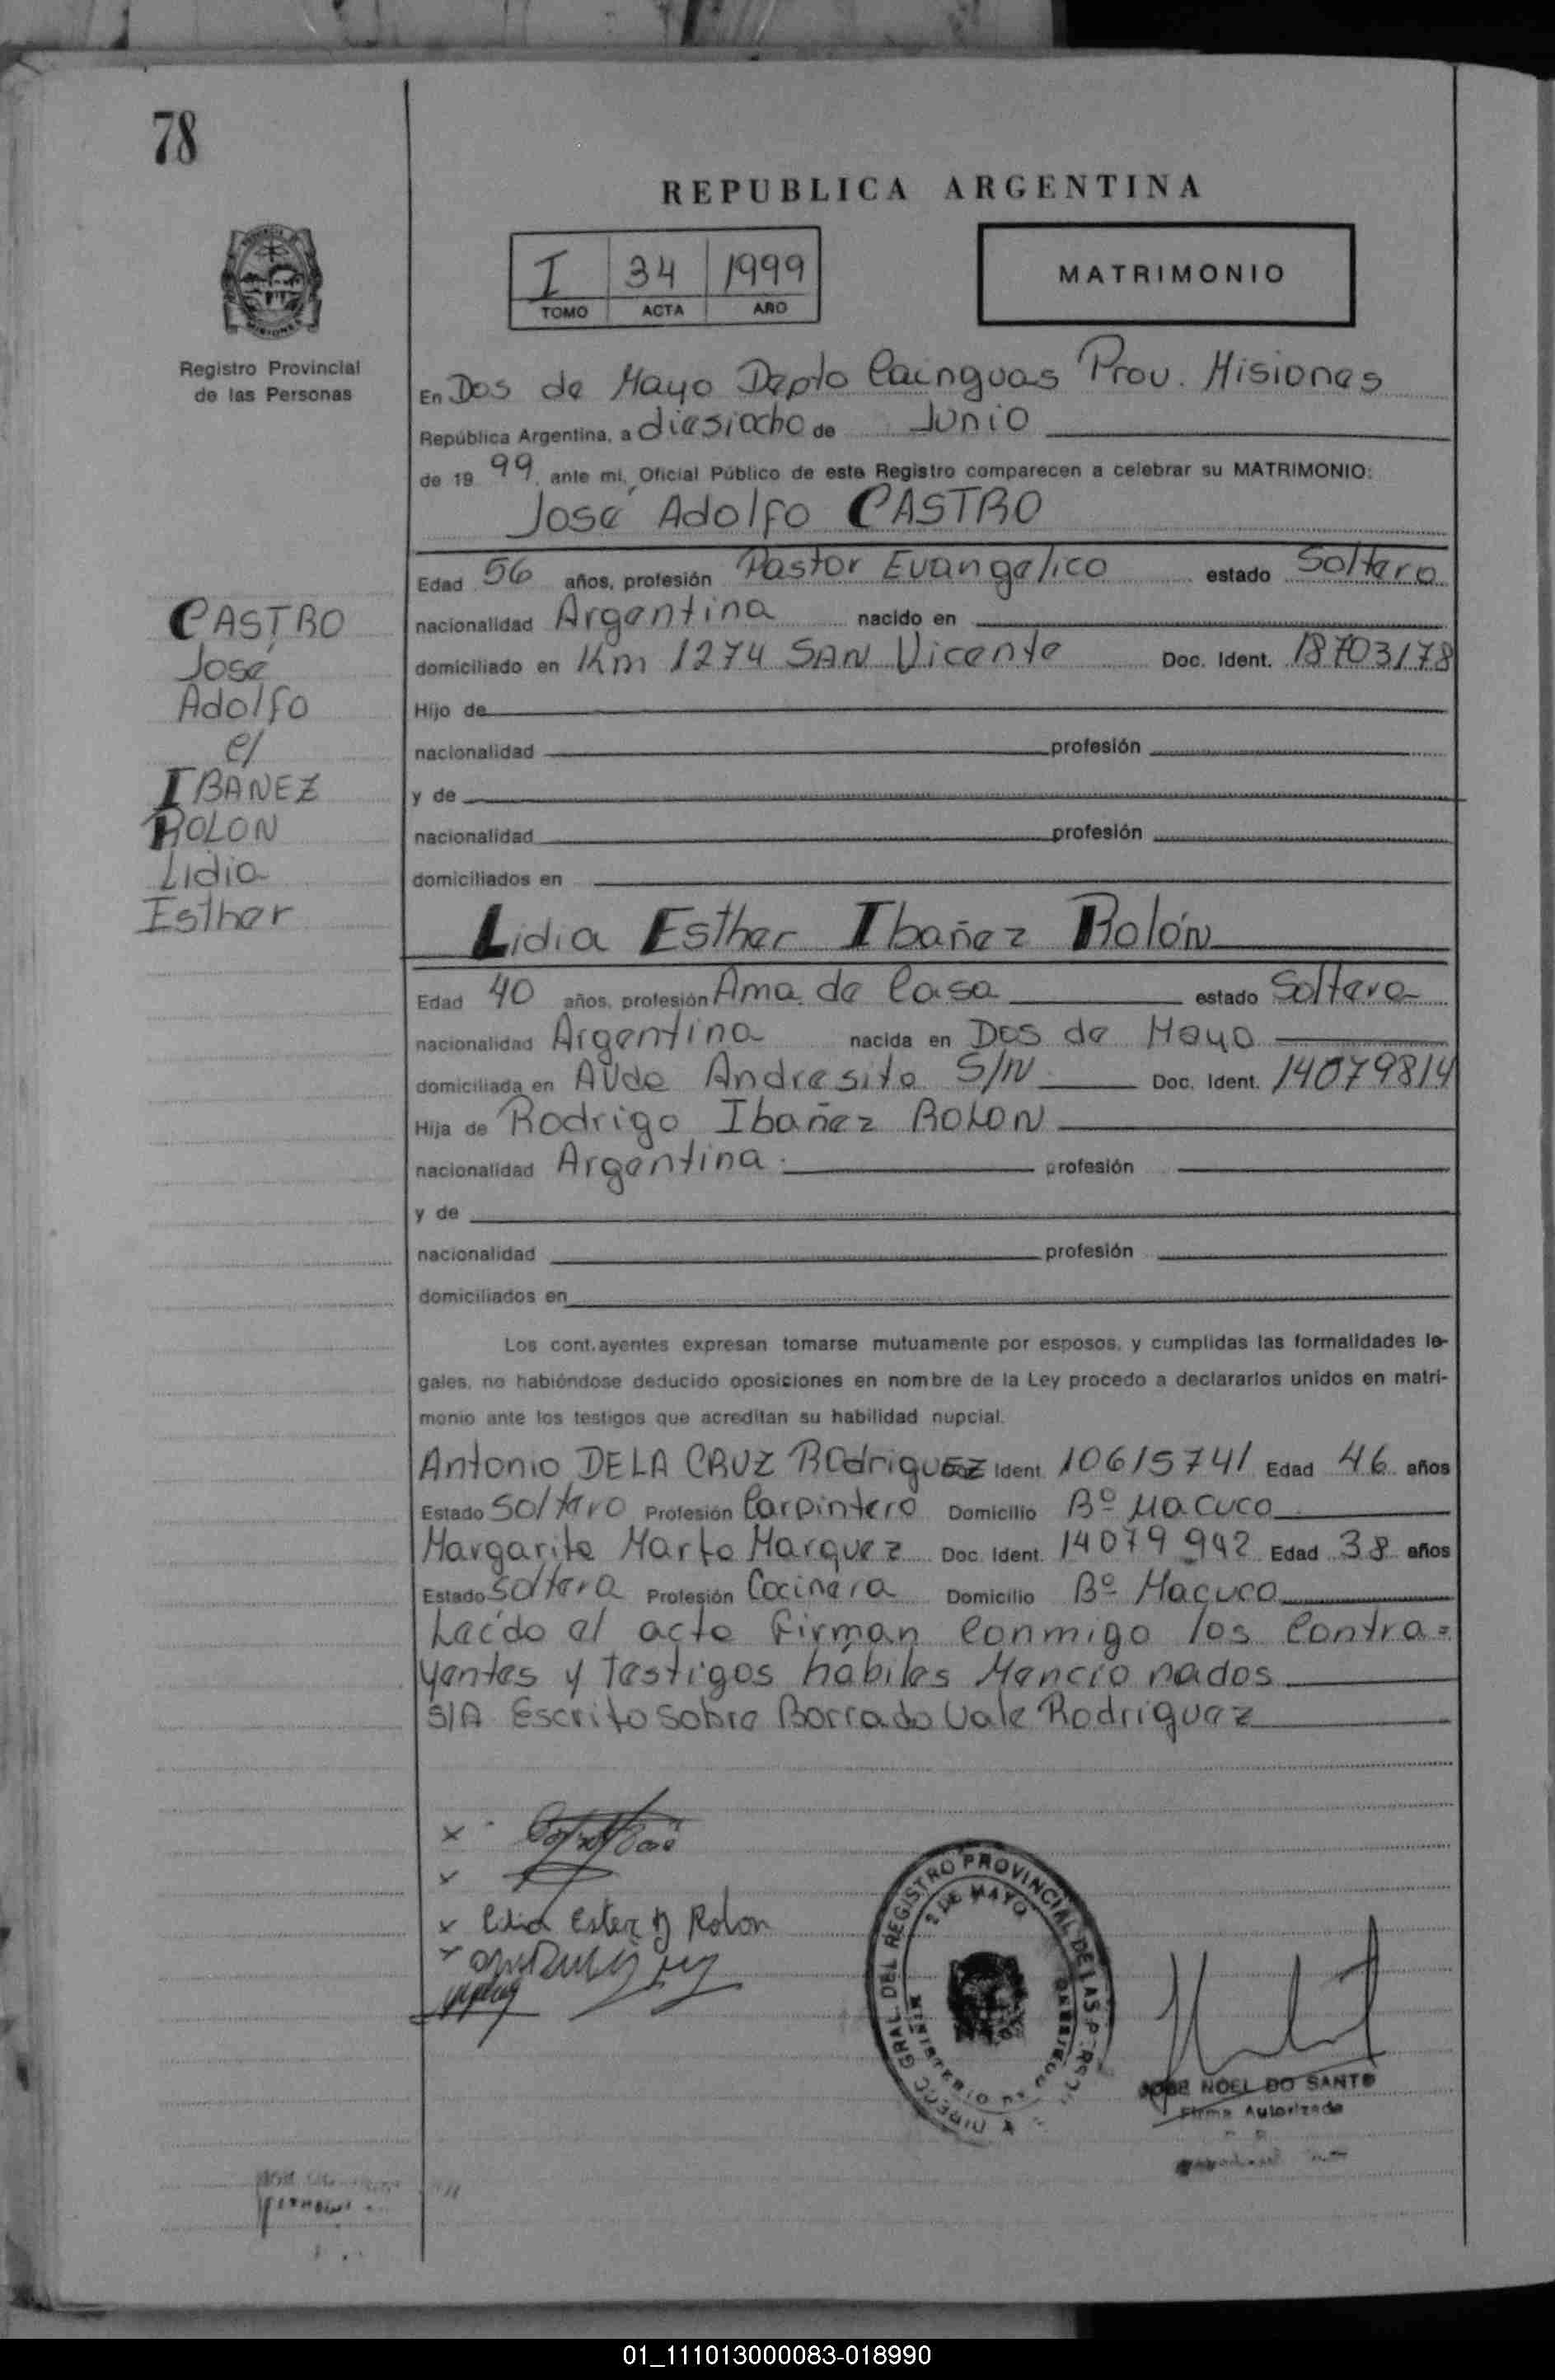 78
REPUBLICA ARGENTINA
I 34 1999
TOMO ACTA AÑO
MATRIMONIO
Registro Provincial
de las Personas
En Dos de Mayo Depto Cainguas Prov. Misiones
República Argentina, a diesiocho de Junio
de 19 99, ante mi, Oficial Público de este Registro comparecen a celebrar su MATRIMONIO:
José Adolfo CASTRO
Edad 56 años, profesión Pastor Evangelico estado Soltero
nacionalidad Argentina nacido en
domiciliado en Km 1274 SAN Vicente Doc. Ident. 18703178
Hijo de
nacionalidad profesión
y de
nacionalidad profesión
domiciliados en
CASTRO
José
Adolfo
c/
IBANEZ
ROLON
Lidia
Esther
Lidia Esther Ibañez Rolón
Edad 40 años, profesión Ama de Casa estado Soltera
nacionalidad Argentina nacida en Dos de Mayo
domiciliada en Avda Andresito S/N Doc. Ident. 14079814
Hija de Rodrigo Ibañez ROLON
nacionalidad Argentina. profesión
y de
nacionalidad profesión
domiciliados en
Los cont.ayentes expresan tomarse mutuamente por esposos, y cumplidas las formalidades le-
gales, no habiéndose deducido oposiciones en nombre de la Ley procedo a declararlos unidos en matri-
monio ante los testigos que acreditan su habilidad nupcial.
Antonio DE LA CRUZ Rodriguez Ident. 10615741 Edad 46 años
Estado Soltero Profesión Carpintero Domicilio Bº Macuco
Margarita Marta Marquez Doc. Ident. 14079942 Edad 38 años
Estado Soltera Profesión Cocinera Domicilio Bº Macuco
Leído el acta firman conmigo los Contra=
yentes y testigos hábiles Mencionados
S/A Escrito sobre Borrado Vale Rodriguez
x
x
x Lidia Ester Y Rolon
x
DIRECC GRAL. DEL REGISTRO PROVINCIAL DE LAS PERSO
2 DE MAYO
MINISTERIO DE GOBIERNO
JOSE NOEL DO SANTO
Firma Autorizada
01_111013000083-018990